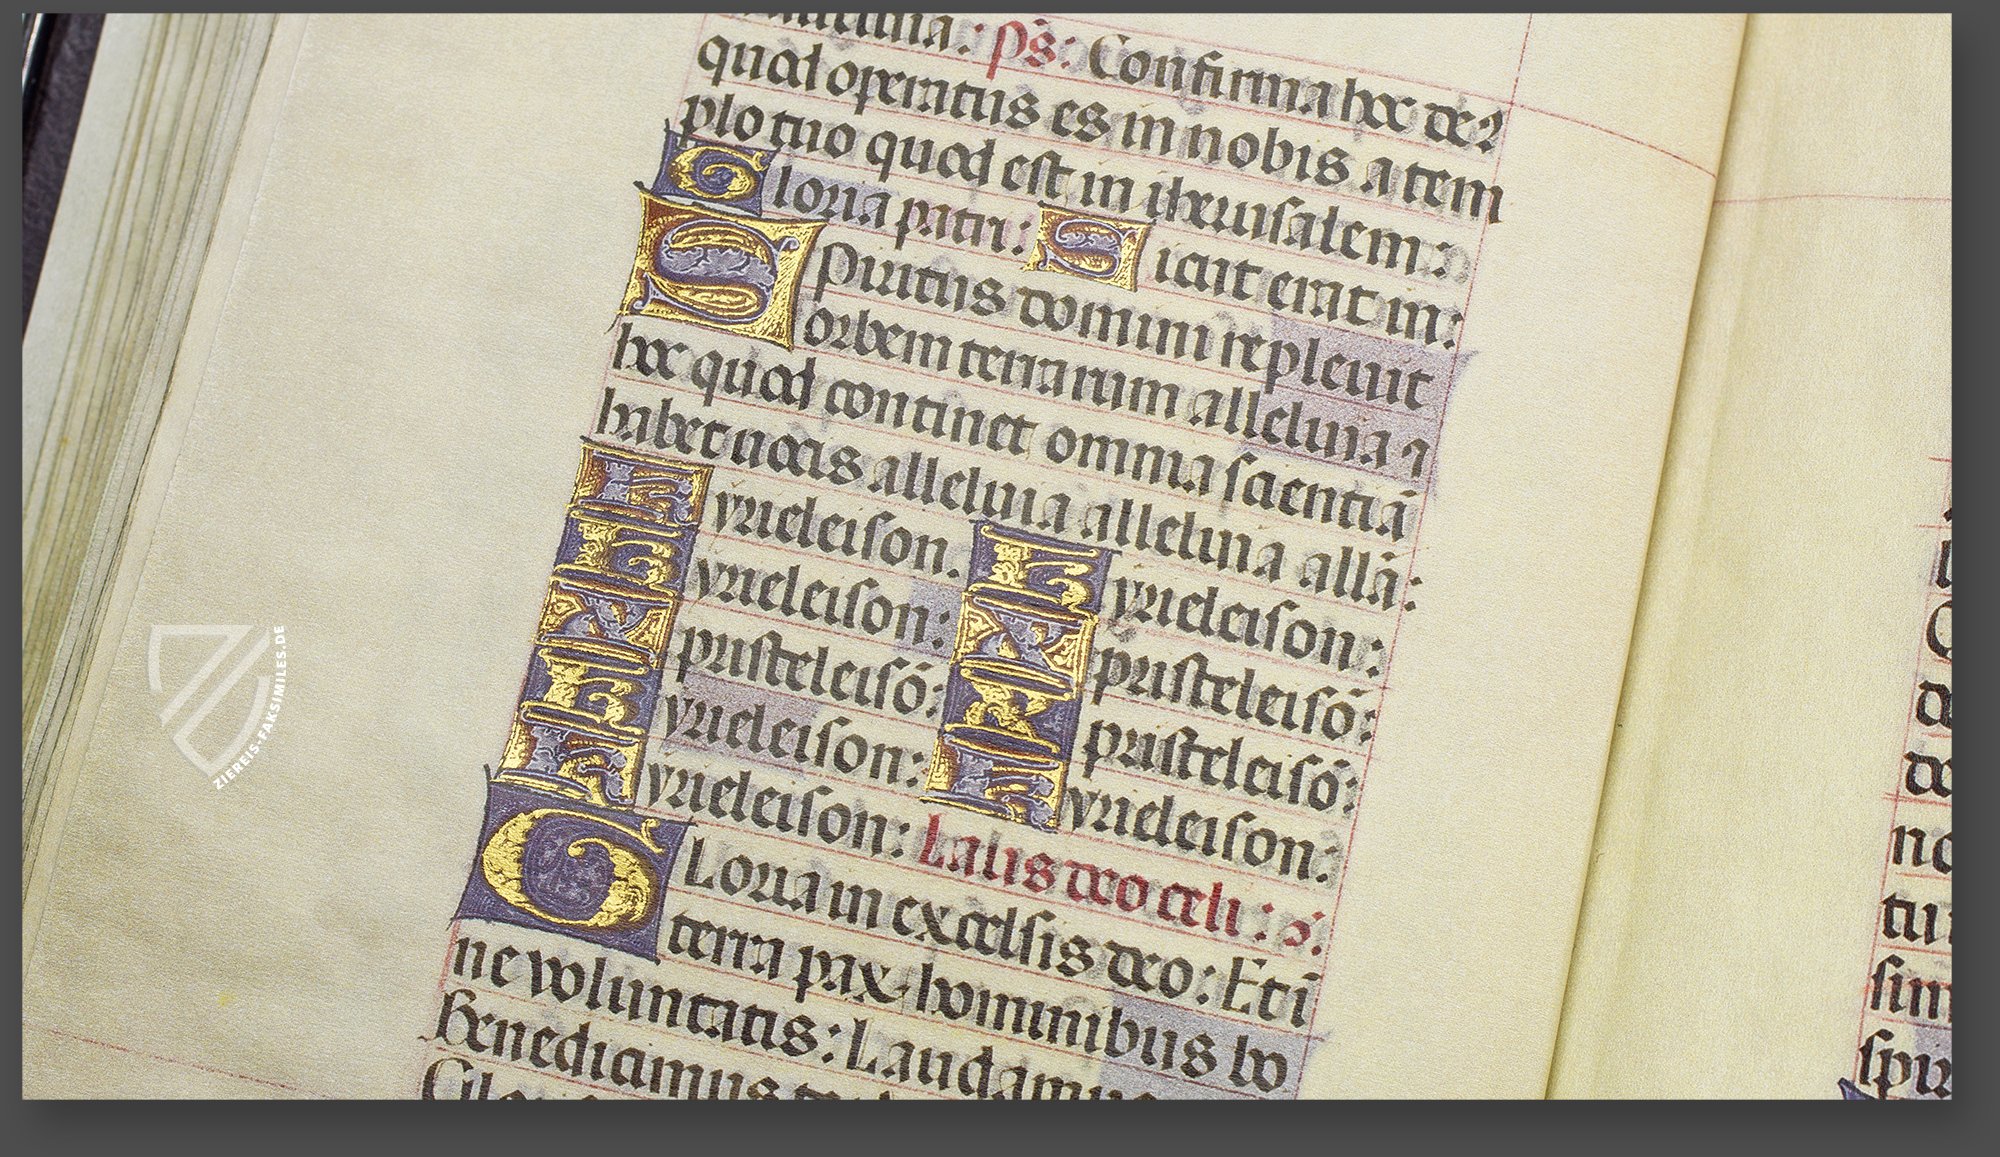 alleluia: ps: Confirma hoc de⁊
quod operatus es in nobis a tem
plo tuo quod est in iherusalem:
Gloria patri: Sicut erat in:
Spiritus domini repleuit
orbem terrarum alleluia ⁊
hoc quod continet omnia scientiā
habet uocis alleluia alleluia allā:
Kyrieleison. Kyrieleison:
Kyrieleison: Xpristeleisō:
Xpristeleisō: Xpristeleisō:
Kyrieleison: Kyrieleison:
Kyrieleison: Lalis deo celi:
GLoria in excelsis deo: Et i
terra pax hominibus bo
ne voluntatis: Laudamus
Benedicimus te
ZIEREIS-FAKSIMILES.DE
de
de
tu
sim
spir